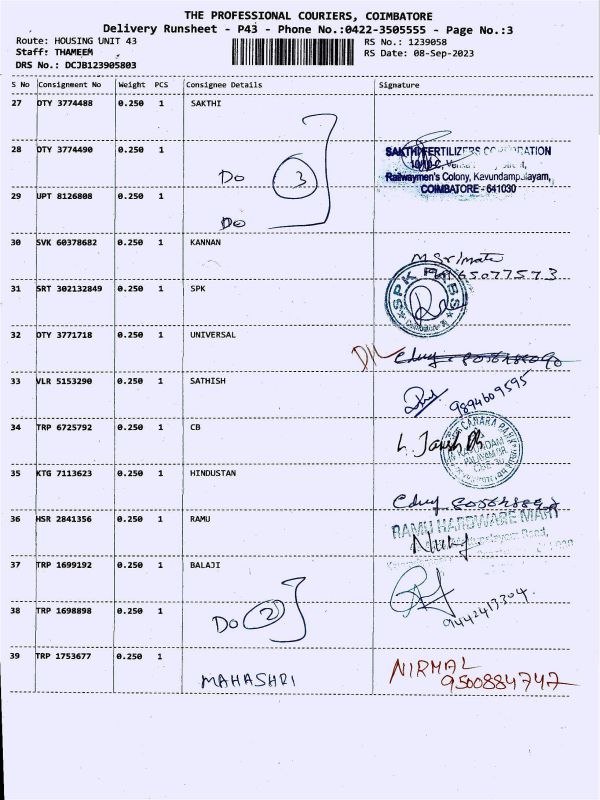 THE PROFESSIONAL COURIERS, COIMBATORE
Delivery Runsheet - P43 - Phone No.:0422-3505555 - Page No.:3
Route: HOUSING UNIT 43 RS No.: 1239058
Staff: THAMEEM RS Date: 08-Sep-2023
DRS No.: DCJB123905803
S No Consignment No Weight PCS Consignee Details Signature
27 OTY 3774488 0.250 1 SAKTHI
28 OTY 3774490 0.250 1
SAKTHI FERTILIZERS
Do 3
Railwaymen's Colony, Kavundampalayam,
COIMBATORE - 641030
29 UPT 8126808 0.250 1
Do
30 SVK 60378682 0.250 1 KANNAN
31 SRT 302132849 0.250 1 SPK
SPK
32 OTY 3771718 0.250 1 UNIVERSAL
33 VLR 5153290 0.250 1 SATHISH
9894609595
34 TRP 6725792 0.250 1 CB
35 KTG 7113623 0.250 1 HINDUSTAN
36 HSR 2841356 0.250 1 RAMU
RAMU HARDWARE MART
37 TRP 1699192 0.250 1 BALAJI
38 TRP 1698898 0.250 1
Do 2
9442417304
39 TRP 1753677 0.250 1
MAHASHRI
NIRMAL
9500884747